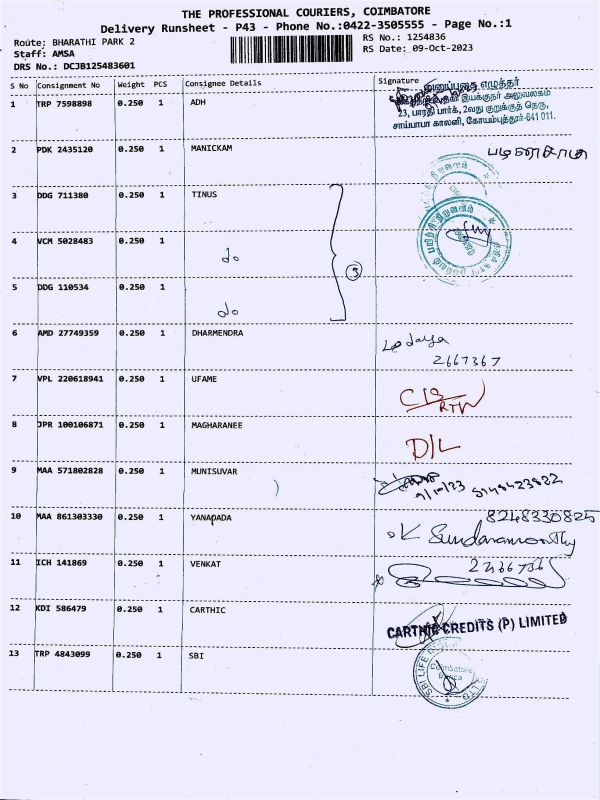 THE PROFESSIONAL COURIERS, COIMBATORE
Delivery Runsheet - P43 - Phone No.:0422-3505555 - Page No.:1
Route; BHARATHI PARK 2
Staff: AMSA
DRS No.: DCJB125483601
RS No.: 1254836
RS Date: 09-Oct-2023
S No Consignment No Weight PCS Consignee Details Signature
1 TRP 7598898 0.250 1 ADH
எழுத்தர்
இயக்குநர் அலுவலகம்
23, பாரதி பார்க், 2வது குறுக்குத் தெரு,
சாய்பாபா காலனி, கோயம்புத்தூர்-641 011.
2 PDK 2435120 0.250 1 MANICKAM
3 DDG 711380 0.250 1 TINUS
4 VCM 5028483 0.250 1 do
3
5 DDG 110534 0.250 1 do
6 AMD 27749359 0.250 1 DHARMENDRA
2667367
7 VPL 220618941 0.250 1 UFAME
RTN
8 JPR 100106871 0.250 1 MAGHARANEE D/L
9 MAA 571802828 0.250 1 MUNISUVAR
9/10/23
10 MAA 861303330 0.250 1 YANAPADA 8248330825
K Sundaramoorthy
11 ICH 141869 0.250 1 VENKAT
12 KDI 586479 0.250 1 CARTHIC
CARTHIC CREDITS (P) LIMITED
13 TRP 4843099 0.250 1 SBI
SBI LIFE
Coimbatore